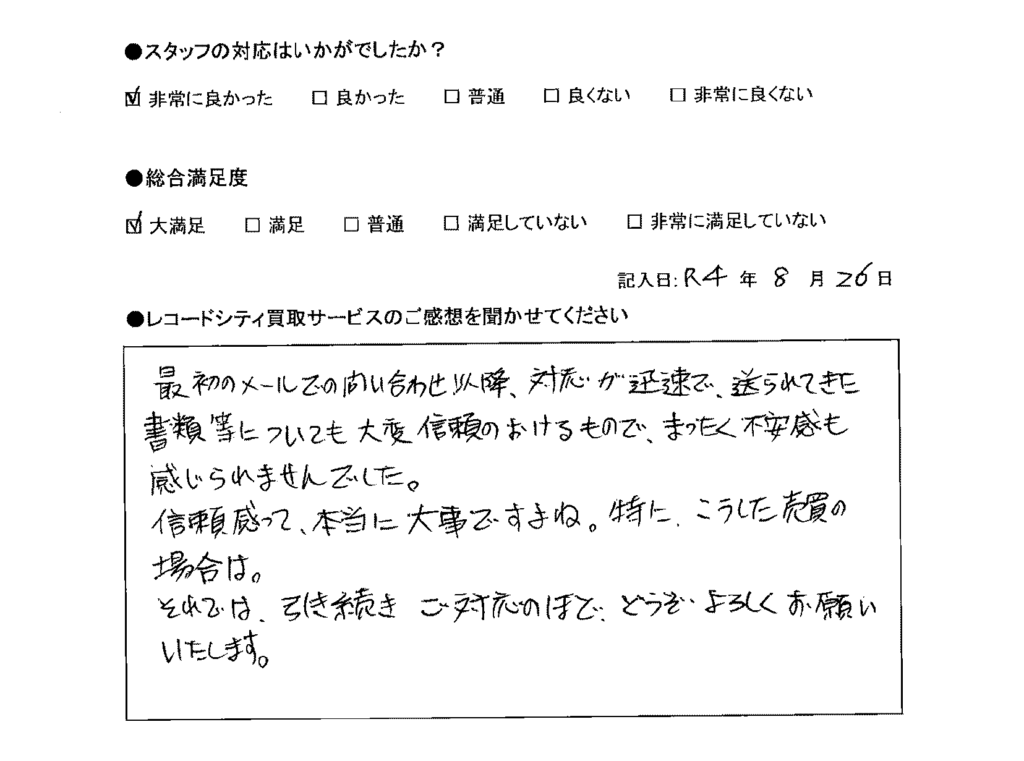 ●スタッフの対応はいかがでしたか？
☑ 非常に良かった　☐ 良かった　☐ 普通　☐ 良くない　☐ 非常に良くない
●総合満足度
☑ 大満足　☐ 満足　☐ 普通　☐ 満足していない　☐ 非常に満足していない
記入日:R4 年 8 月 26 日
●レコードシティ買取サービスのご感想を聞かせてください
最初のメールでの問い合わせ以降、対応が迅速で、送られてきた
書類等についても大変信頼のおけるもので、まったく不安感も
感じられませんでした。
信頼感って、本当に大事ですよね。特に、こうした売買の
場合は。
それでは、引き続きご対応のほど、どうぞよろしくお願い
いたします。